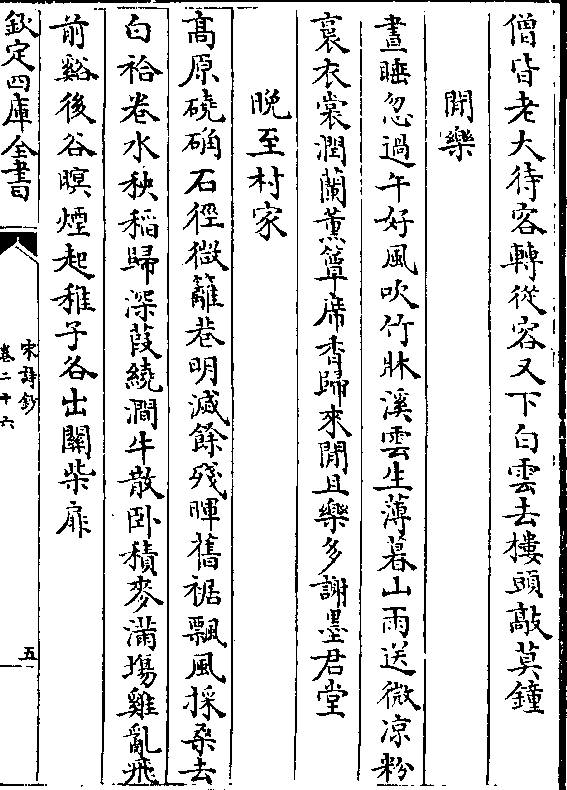 僧皆老大待客轉從容又下白雲去樓頭敲莫鐘
閒樂
晝睡忽過午好風吹竹牀溪雲生薄暮山雨送微凉粉
裛衣裳潤蘭薰簟席香歸來閒且樂多謝墨君堂
晩至村家
髙原磽确石徑微籬巷明滅餘殘暉舊裾飄風採桑去
白袷卷水秧稻歸深葭繞澗牛散卧積麥滿塲雞亂飛
前谿後谷暝煙起稚子各出關柴扉
欽定四庫全書
宋詩鈔
卷二十六
五